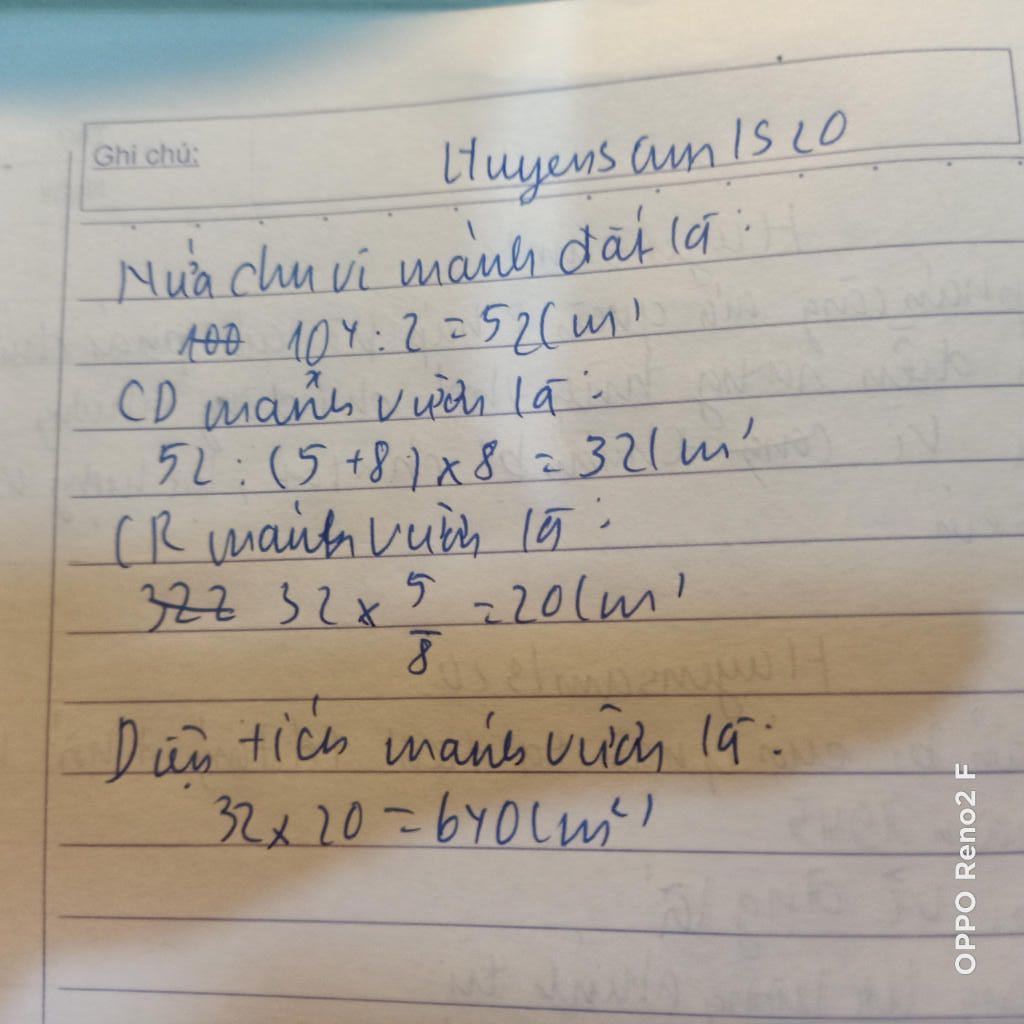 Ghi chú:
Huyensam1520
Nửa chu vi mảnh đất là:
100 104 : 2 = 52(m)
CD mảnh vườn là:
52 : (5 + 8) x 8 = 32(m)
CR mảnh vườn là:
322 32 x 5/8 = 20(m)
Diện tích mảnh vườn là:
32 x 20 = 640(m²)
OPPO Reno2 F